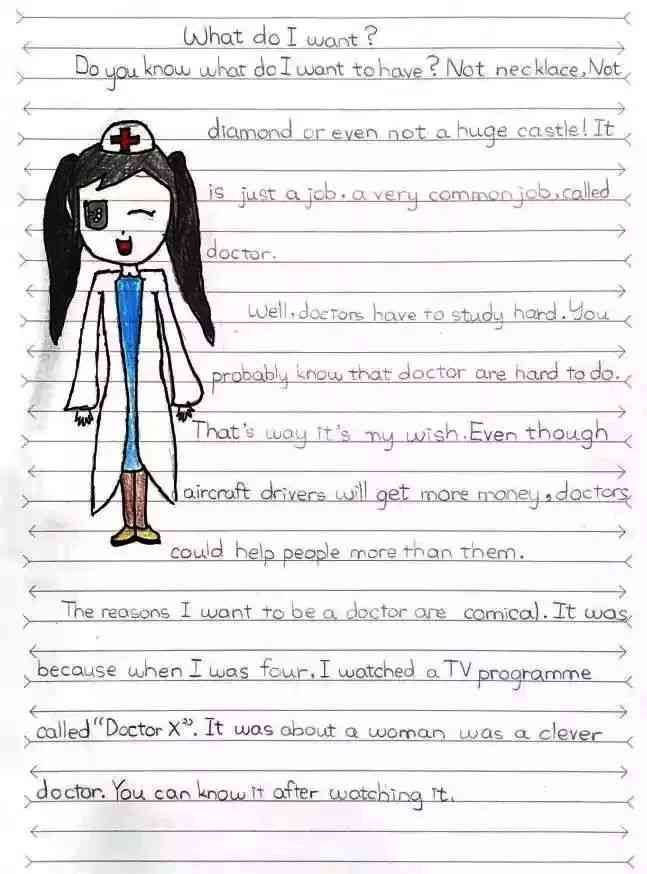 What do I want?
Do you know what do I want to have? Not necklace, Not
diamond or even not a huge castle! It
is just a job, a very common job, called
doctor.
Well, doctors have to study hard. You
probably know that doctor are hard to do.
That's way it's my wish. Even though
aircraft drivers will get more money, doctors
could help people more than them.
The reasons I want to be a doctor are comical. It was
because when I was four, I watched a TV programme
called "Doctor X". It was about a woman was a clever
doctor. You can know it after watching it.